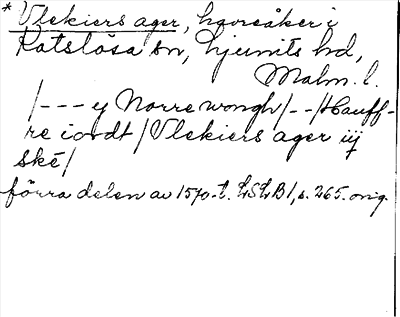 * Vlekiers ager, havreåker i
Katslösa sn, Ljunits hd,
Malm. l.
/--- y Norre wongh/--/Hauff-
re iordt/Vlekiers ager iij
ske/
förra delen av 1570-t. LSLB1, s. 265. orig.